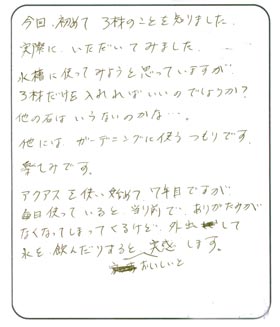 今回、初めて3株のことを知りました。
実際に いただいてみました。
水槽に使ってみようと思っていますが
3株だけを入れればいいのでしょうか?
他の石はいらないのかな…。
他には ガーデニングに使うつもりです。
楽しみです。
アクアスを使い始めて7年目ですが
毎日使っていると、当り前で、ありがたみが
なくなってしまってくるけど、外出して
水を飲んだりすると 実感します。
おいしいと